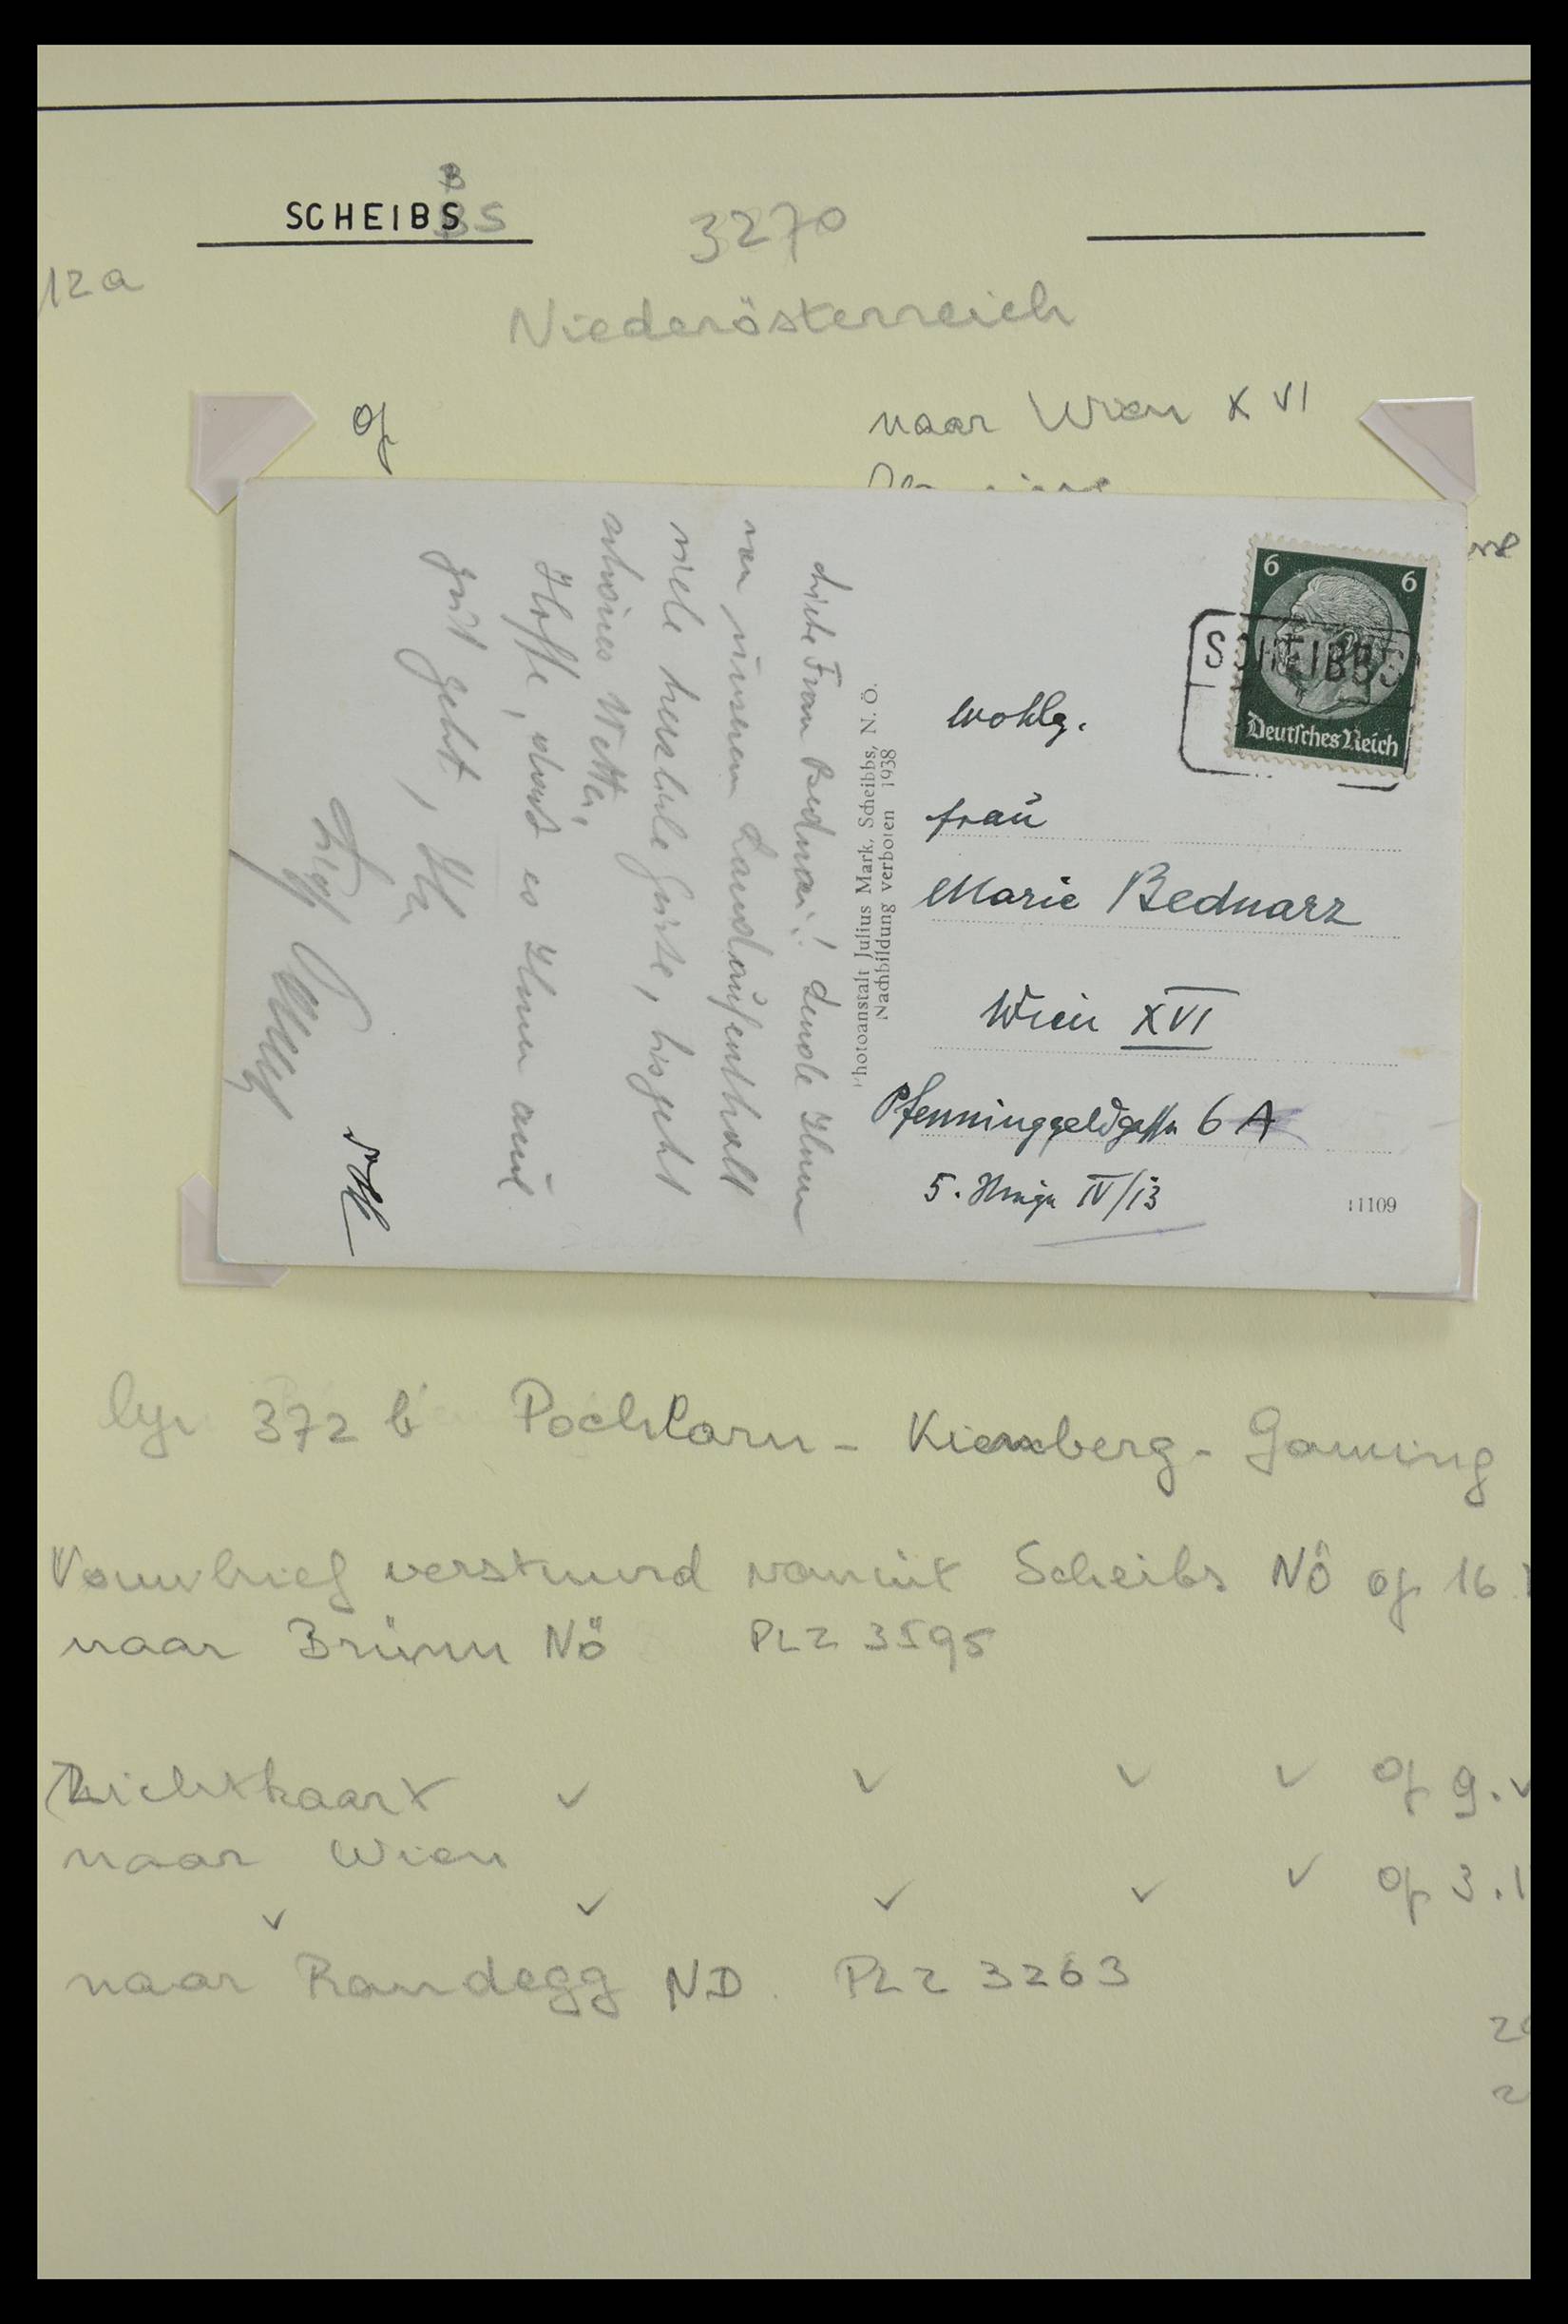 SCHEIBS
BS
3270
12a
Niederösterreich
op
naar Wien XVI
6 6
SCHEIBBS
Deutsches Reich
wohlg.
Frau
Marie Bednarz
Wien XVI
Pfenninggeldgasse 6 A
5. Stiege IV/13
11109
Photoanstalt Julius Mark, Scheibbs, N. Ö.
Nachbildung verboten 1938
Liebe Frau Bednarz! Sende Ihnen
von unserem Landaufenthalt
viele herzliche Grüsse, bis jetzt
schönes Wetter,
Hoffe, dass es Ihnen auch
gut geht,
lyn 372 b Pochlarn - Kienberg - Gaming
Vouwbrief verstuurd vanuit Scheibs NÖ op 16
naar Brünn NÖ PLZ 3595
Zichtkaart ✓ ✓ ✓ ✓ op 9.
naar Wien
✓ ✓ ✓ ✓ ✓ op 3.1
naar Randegg NÖ. PLZ 3263